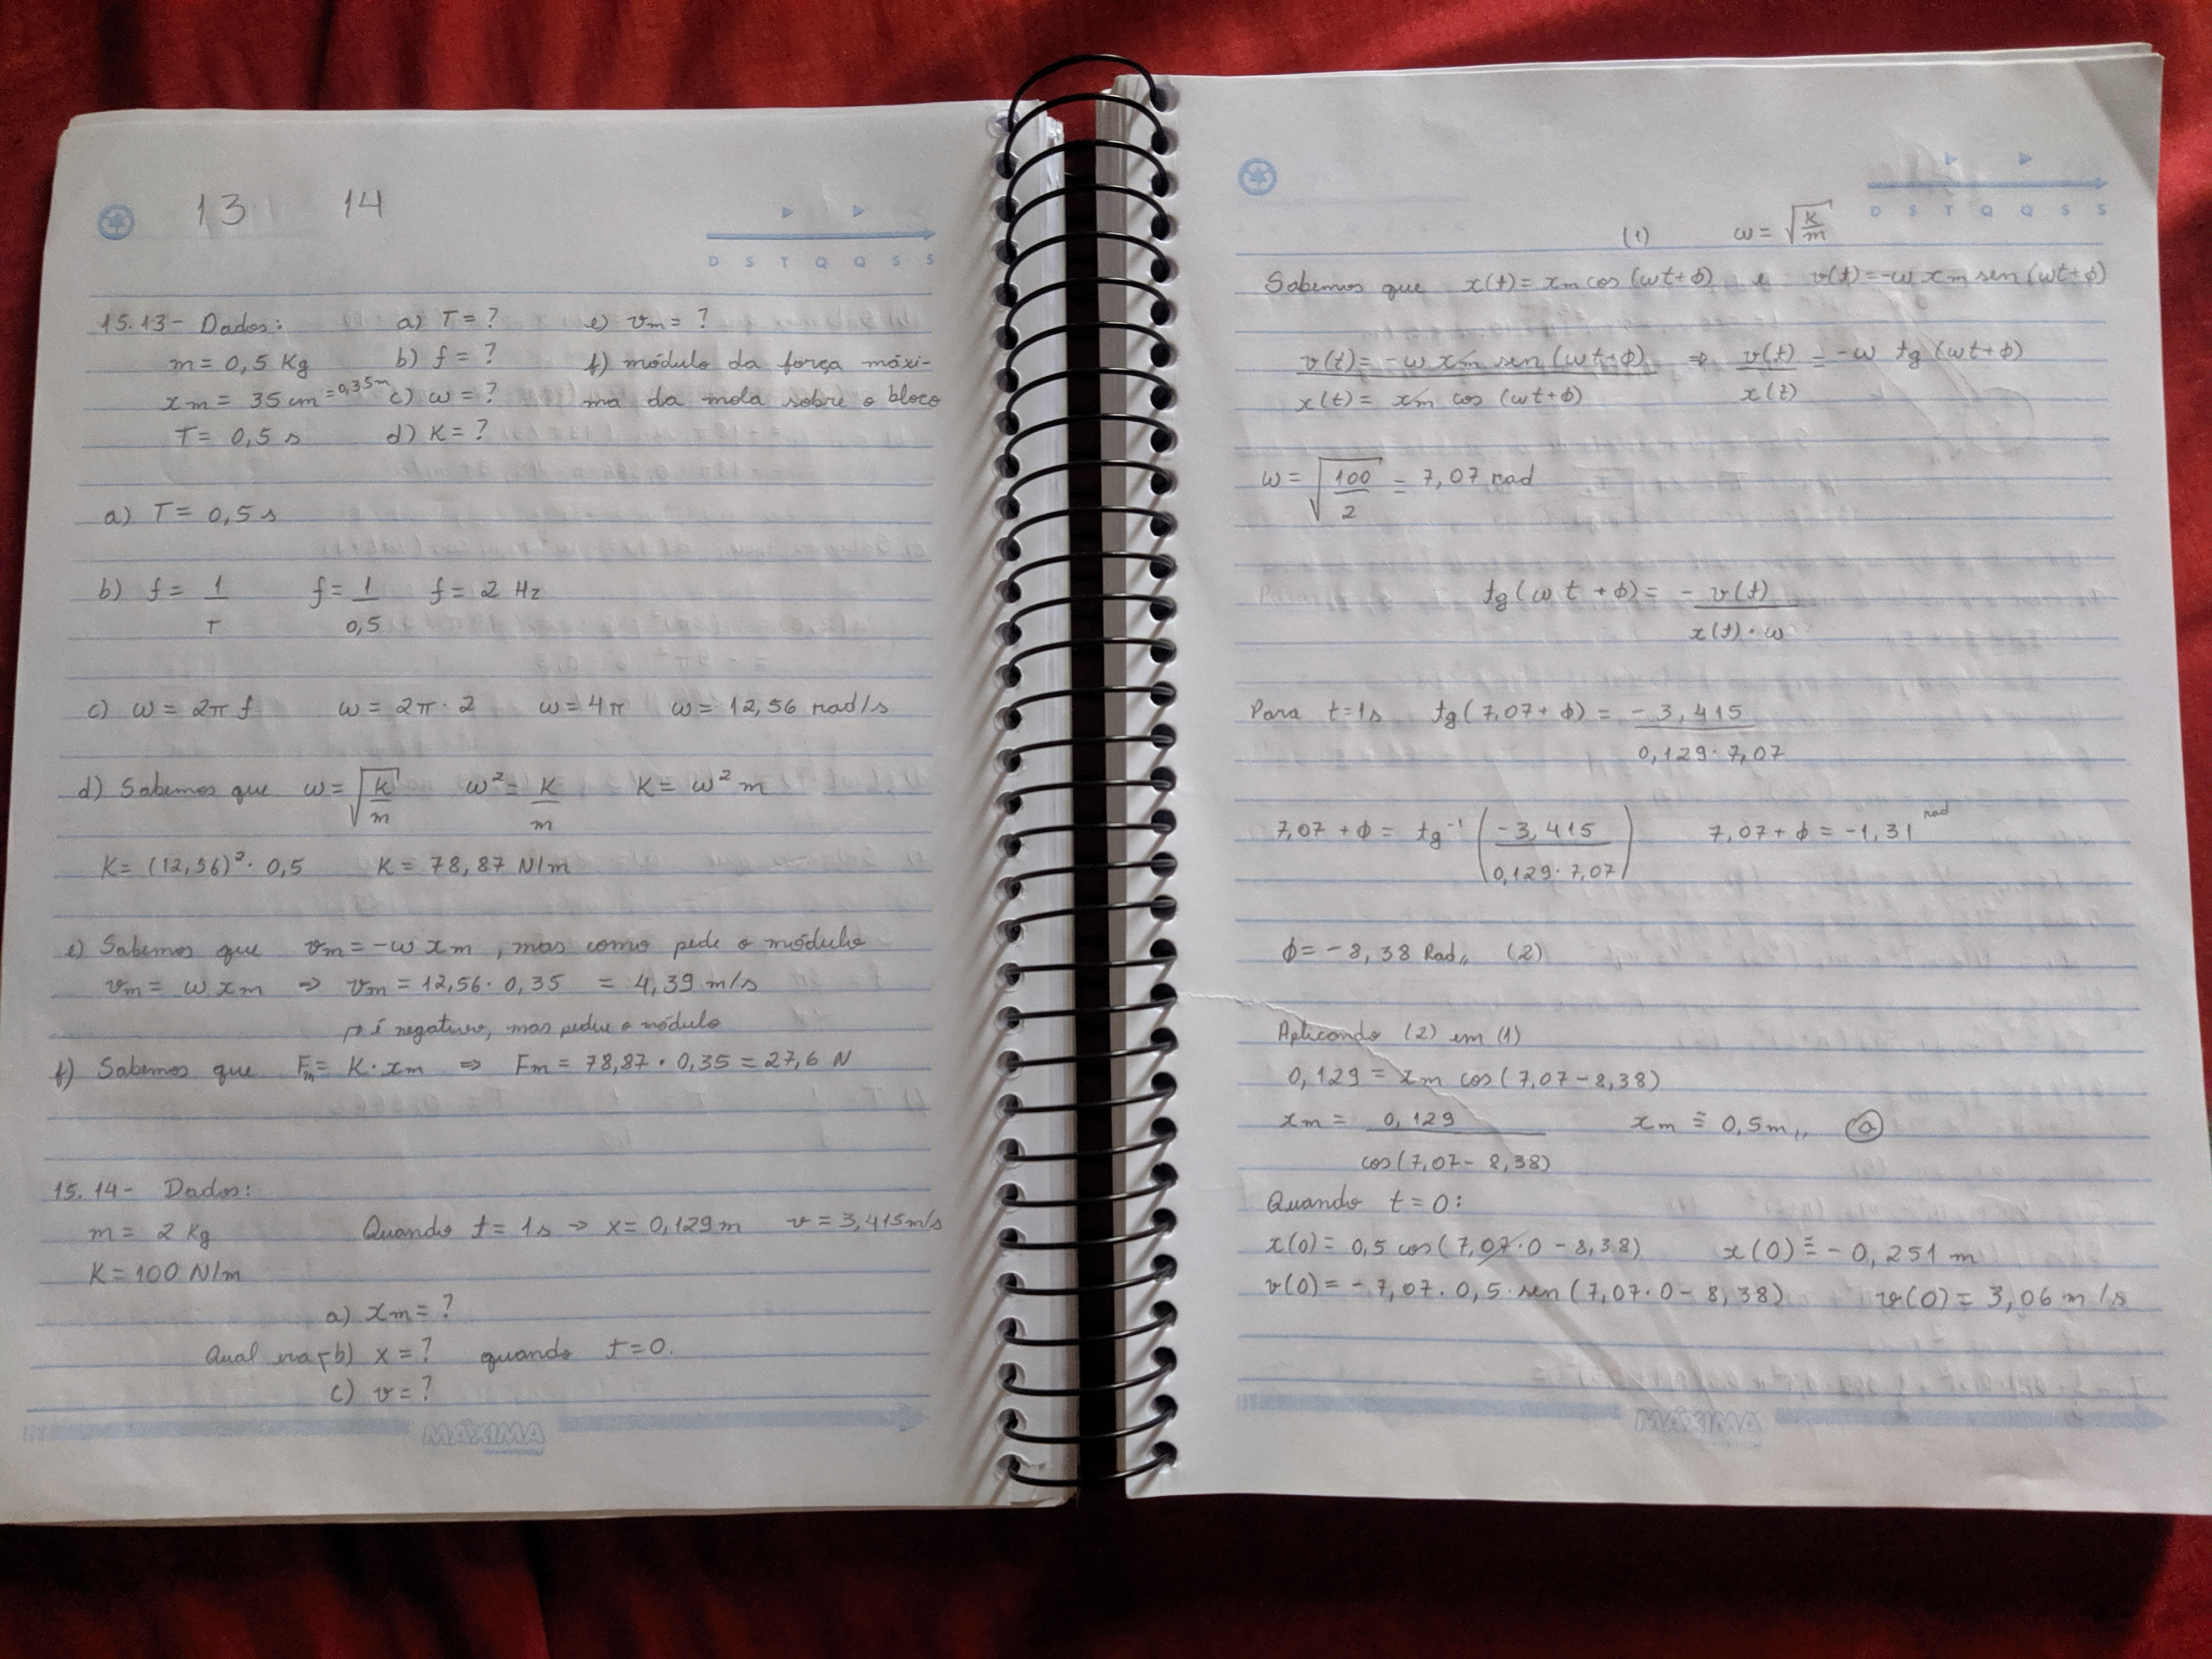 13 14
D S T Q Q S S
15.13- Dados: a) T = ? e) vm = ?
m = 0,5 Kg b) f = ? f) módulo da força máxi-
xm = 35 cm = 0,35m c) w = ? ma da mola sobre o bloco
T = 0,5 s d) K = ?
a) T = 0,5 s
b) f = 1/T f = 1/0,5 f = 2 Hz
c) w = 2π f w = 2π · 2 w = 4π w = 12,56 rad/s
d) Sabemos que w = √K/m w² = K/m K = w² m
K = (12,56)² · 0,5 K = 78,87 N/m
e) Sabemos que vm = -w xm, mas como pede o módulo
vm = w xm ⇒ vm = 12,56 · 0,35 = 4,39 m/s
é negativo, mas pediu o módulo
f) Sabemos que Fm = K · xm ⇒ Fm = 78,87 · 0,35 = 27,6 N
15.14- Dados:
m = 2 Kg Quando t = 1s → x = 0,129m v = 3,415m/s
K = 100 N/m
a) xm = ?
b) x = ? quando t = 0.
c) v = ?
MÁXIMA
(1) w = √K/m
D S T Q Q S S
Sabemos que x(t) = xm cos (wt+ϕ) e v(t) = -w xm sen(wt+ϕ)
v(t) = -w xm sen (wt+ϕ) ⇒ v(t) = -w tg (wt+ϕ)
x(t) = xm cos (wt+ϕ) x(t)
w = √100/2 = 7,07 rad
tg (wt + ϕ) = - v(t)/x(t) · w
Para t = 1s tg (7,07 + ϕ) = - 3,415/0,129 · 7,07
7,07 + ϕ = tg⁻¹ (-3,415/0,129 · 7,07) 7,07 + ϕ = -1,31 rad
ϕ = - 8,38 Rad,, (2)
Aplicando (2) em (1)
0,129 = xm cos (7,07 - 8,38)
xm = 0,129/cos(7,07 - 8,38) xm ≅ 0,5m,, (a)
Quando t = 0:
x(0) = 0,5 cos(7,07 · 0 - 8,38) x(0) ≅ - 0,251 m
v(0) = -7,07 · 0,5 · sen (7,07 · 0 - 8,38) v(0) = 3,06 m/s
MÁXIMA